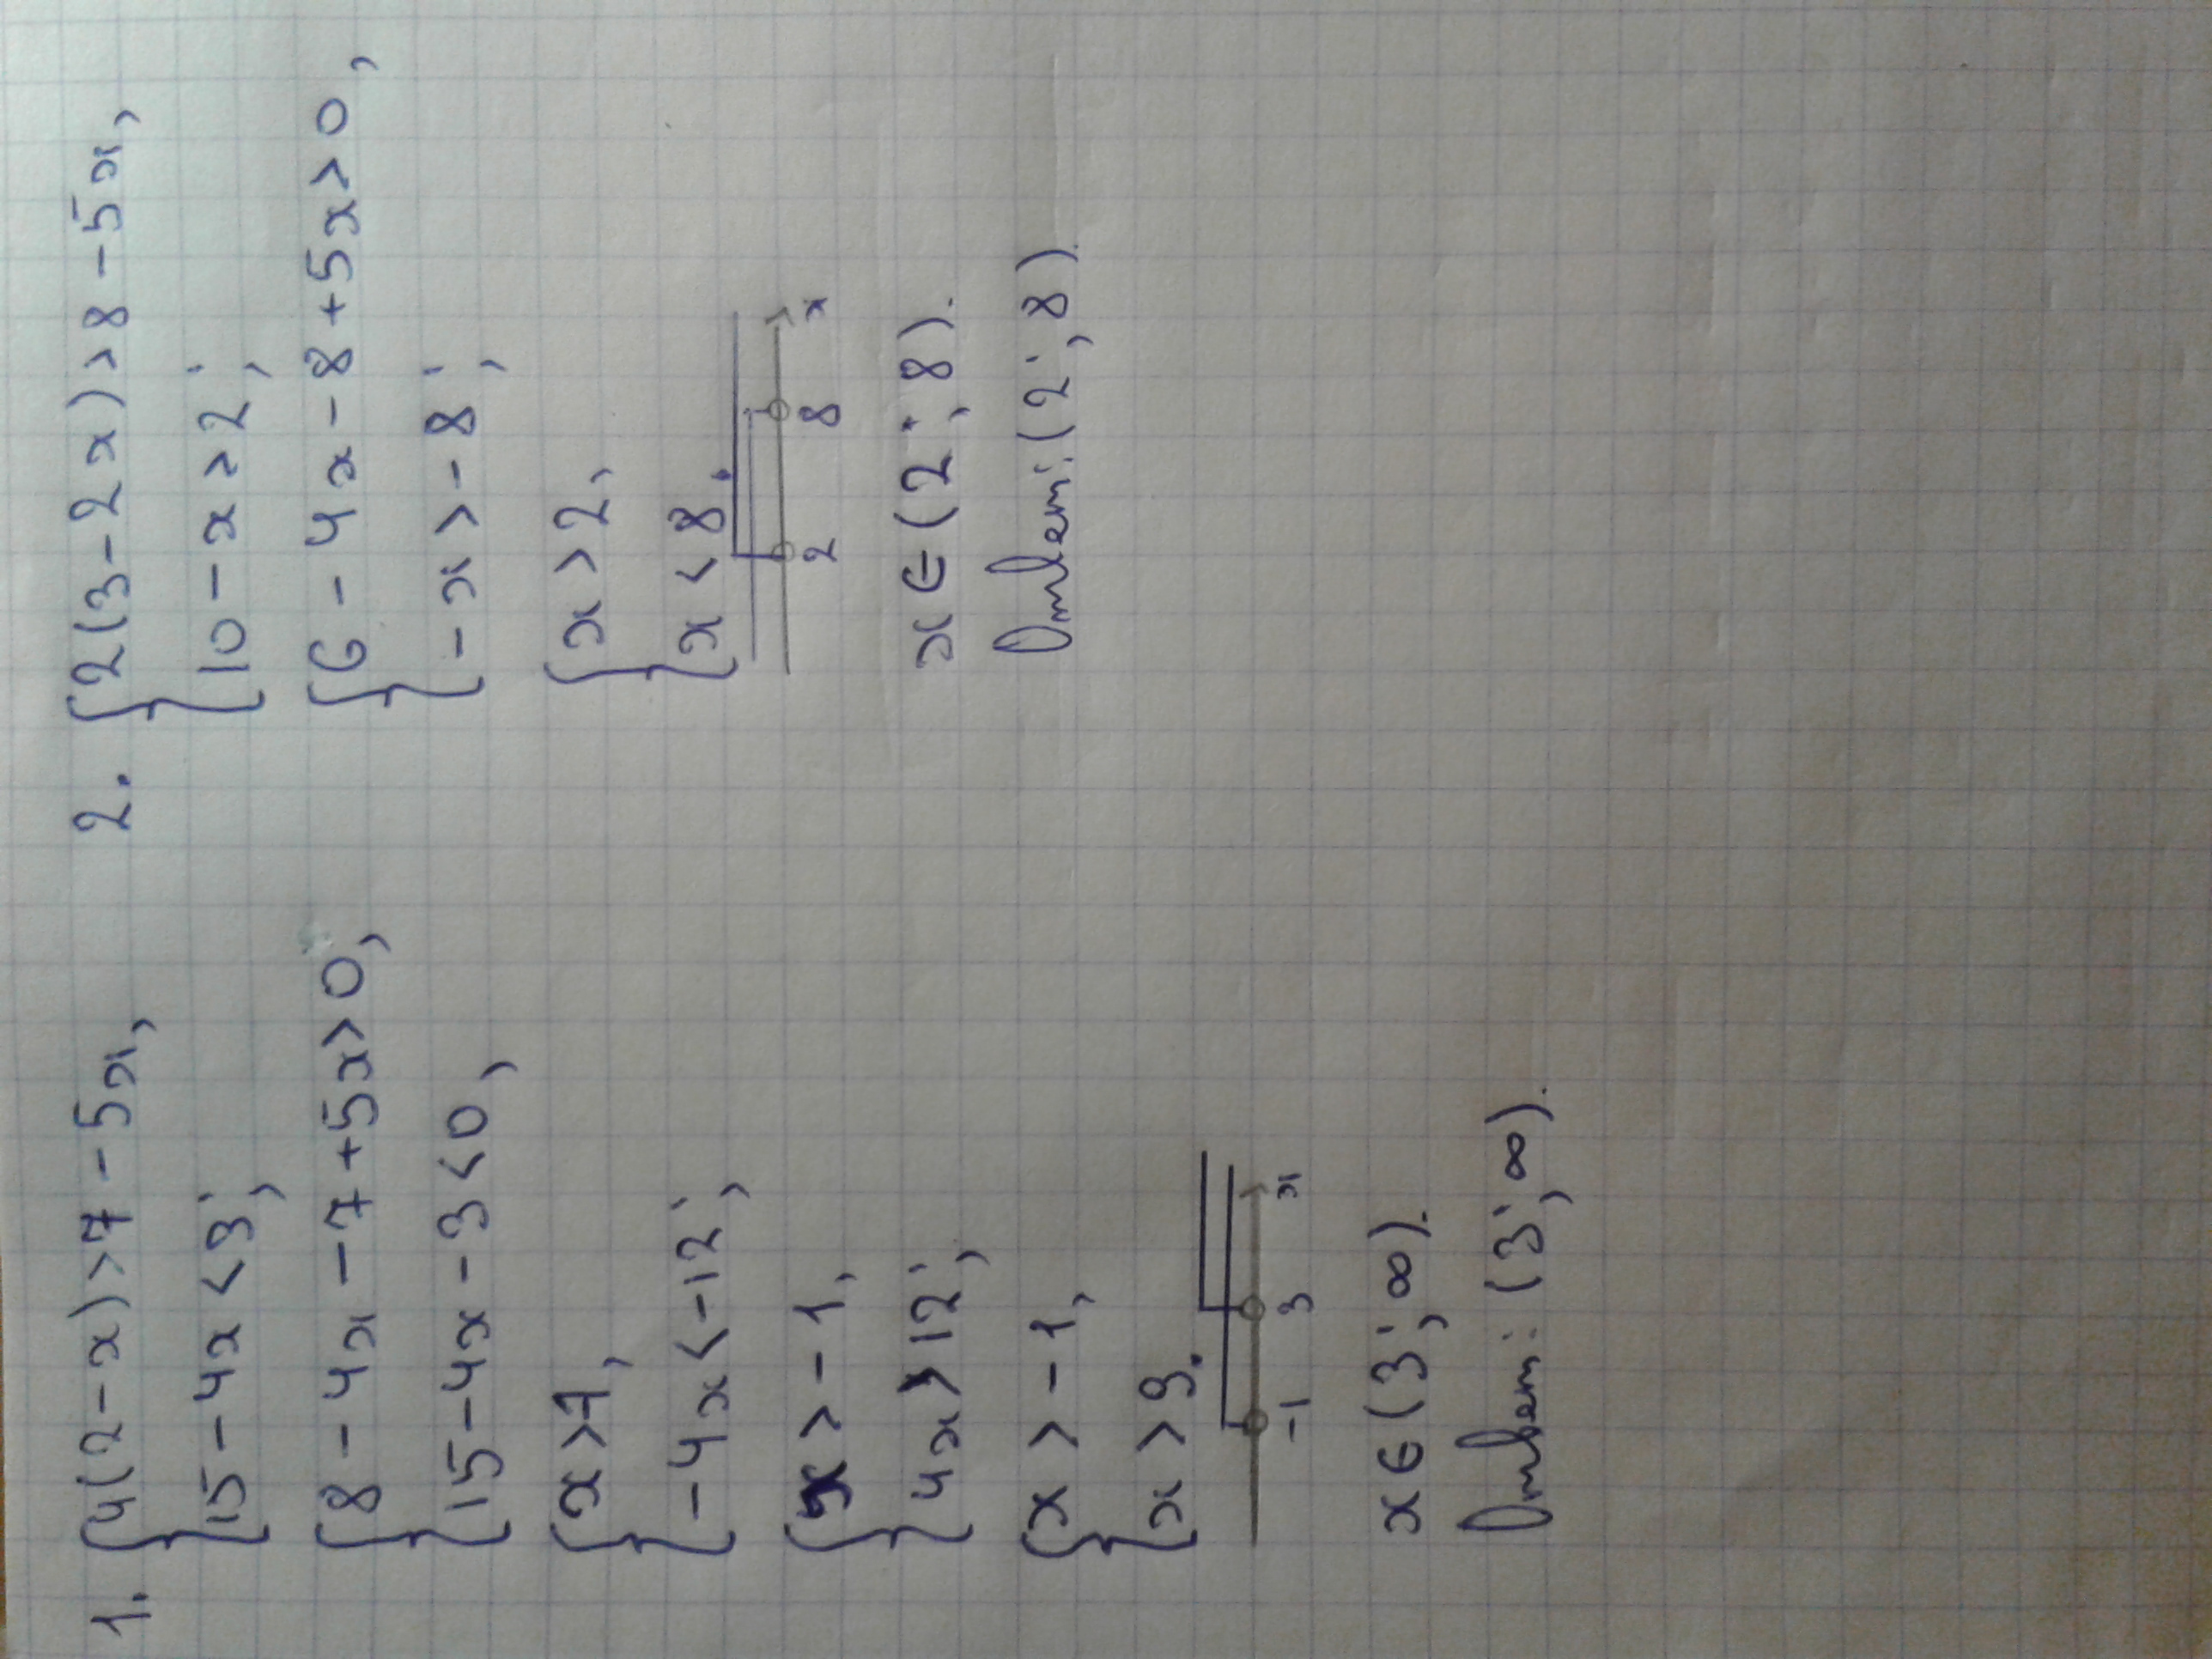 1. {4(2-x)>7-5x,
{15-4x<3;
{8-4x-7+5x>0,
{15-4x-3<0,
{x>7,
{-4x<-12;
{x>-1,
{4x>12;
{x>-1,
{x>3.
-1 3 x
x∈(3;∞).
Ответ: (3;∞).
2. {2(3-2x)>8-5x,
{10-x>2;
{6-4x-8+5x>0,
{-x>-8;
{x>2,
{x<8.
2 8 x
x∈(2;8).
Ответ: (2;8).